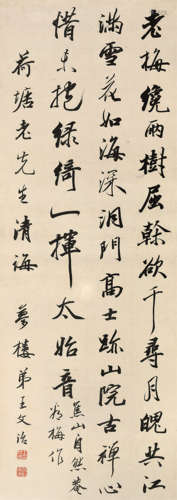 老梅纔兩樹屈榦欲千尋月魄共江
滿雪花如海深洞門高士跡山院古禪心
惜未抱綠綺一揮太始音
焦山自然菴
看梅作
荷塘老先生清誨 夢樓弟王文治